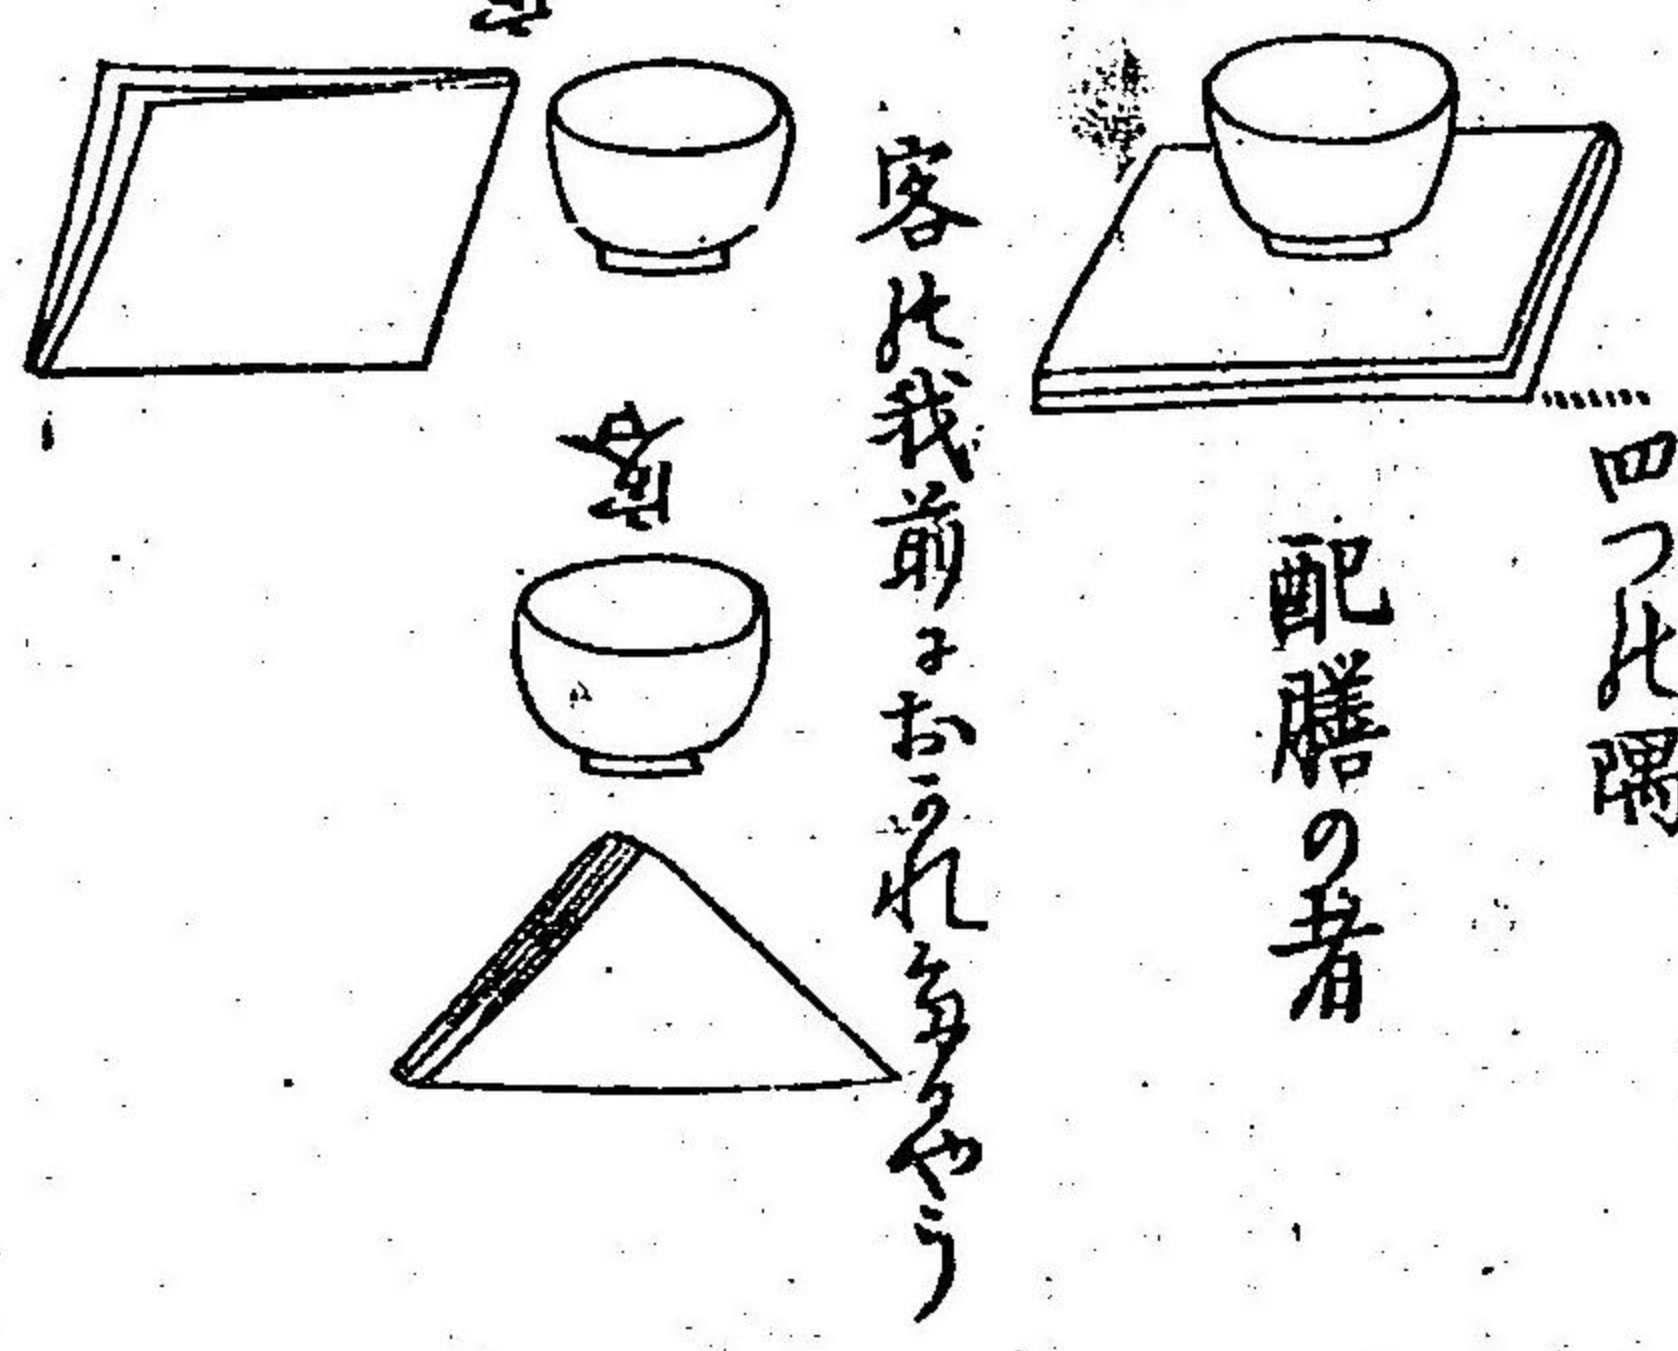 四つの隅
配膳の者
客の我前におかれたるやう